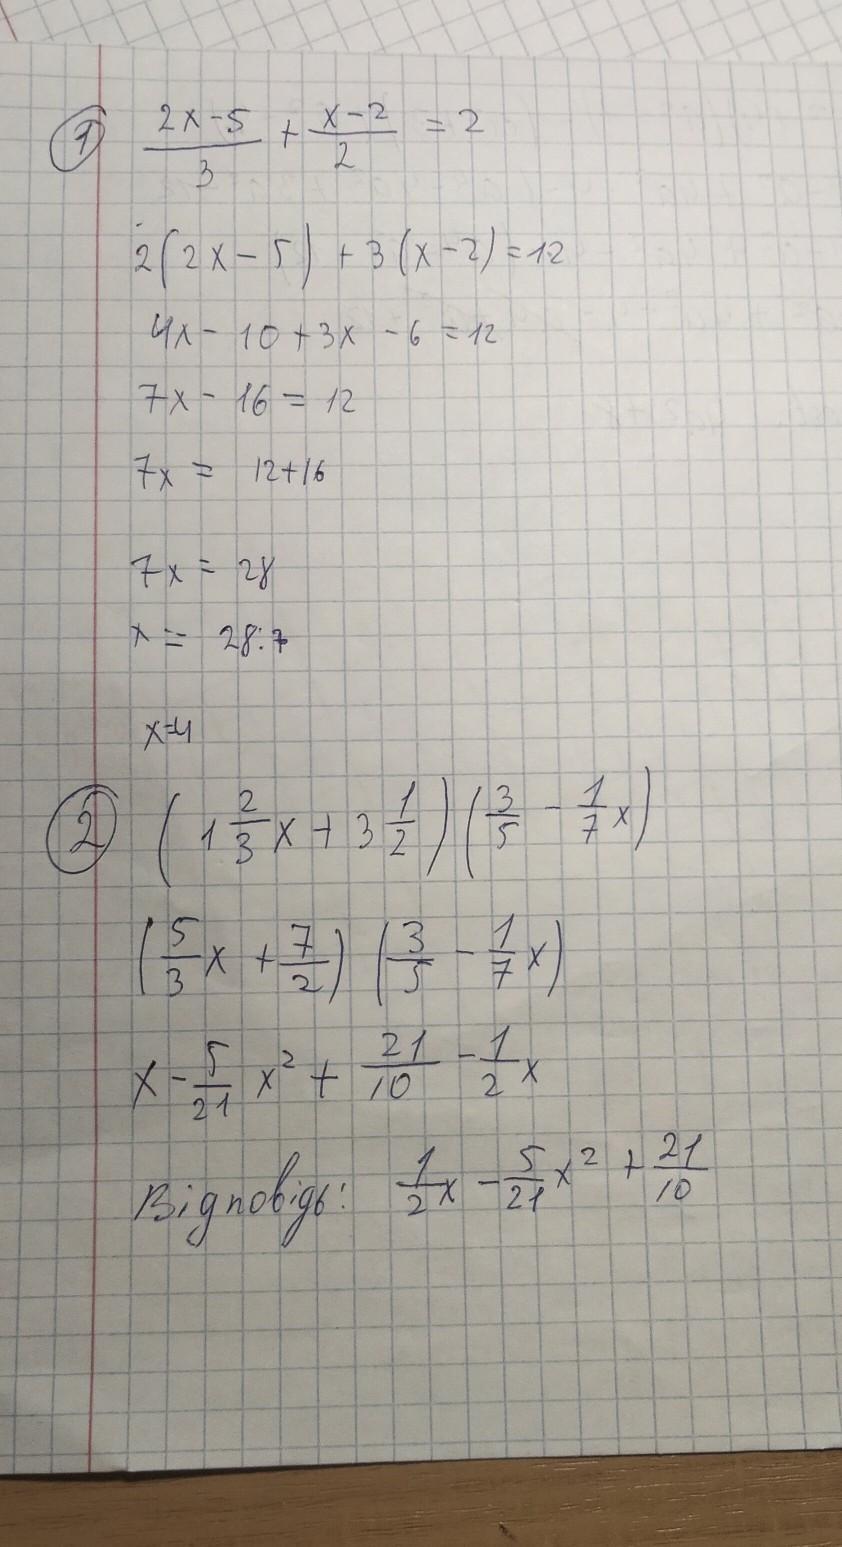 1 (2x-5)/3 + (x-2)/2 = 2
2(2x-5) + 3(x-2) = 12
4x - 10 + 3x - 6 = 12
7x - 16 = 12
7x = 12+16
7x = 28
x = 28:7
x=4
2 (1 2/3 x + 3 1/2) (3/5 - 1/7 x)
(5/3 x + 7/2) (3/5 - 1/7 x)
x - 5/21 x² + 21/10 - 1/2 x
Відповідь: 1/2 x - 5/21 x² + 21/10